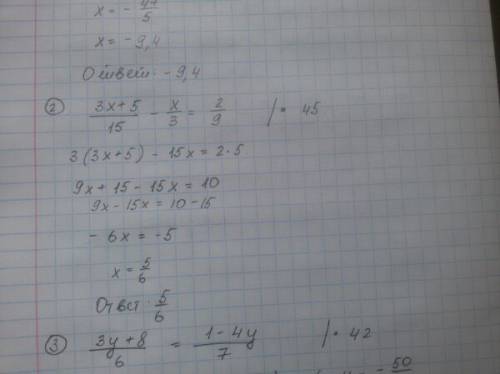 x = - 47/5
x = - 9,4
Ответ: - 9,4
② (3x+5)/15 - x/3 = 2/9 | • 45
3(3x+5) - 15x = 2·5
9x + 15 - 15x = 10
9x - 15x = 10 - 15
- 6x = -5
x = 5/6
Ответ: 5/6
③ (3y+8)/6 = (1-4y)/7 | • 42
- 50